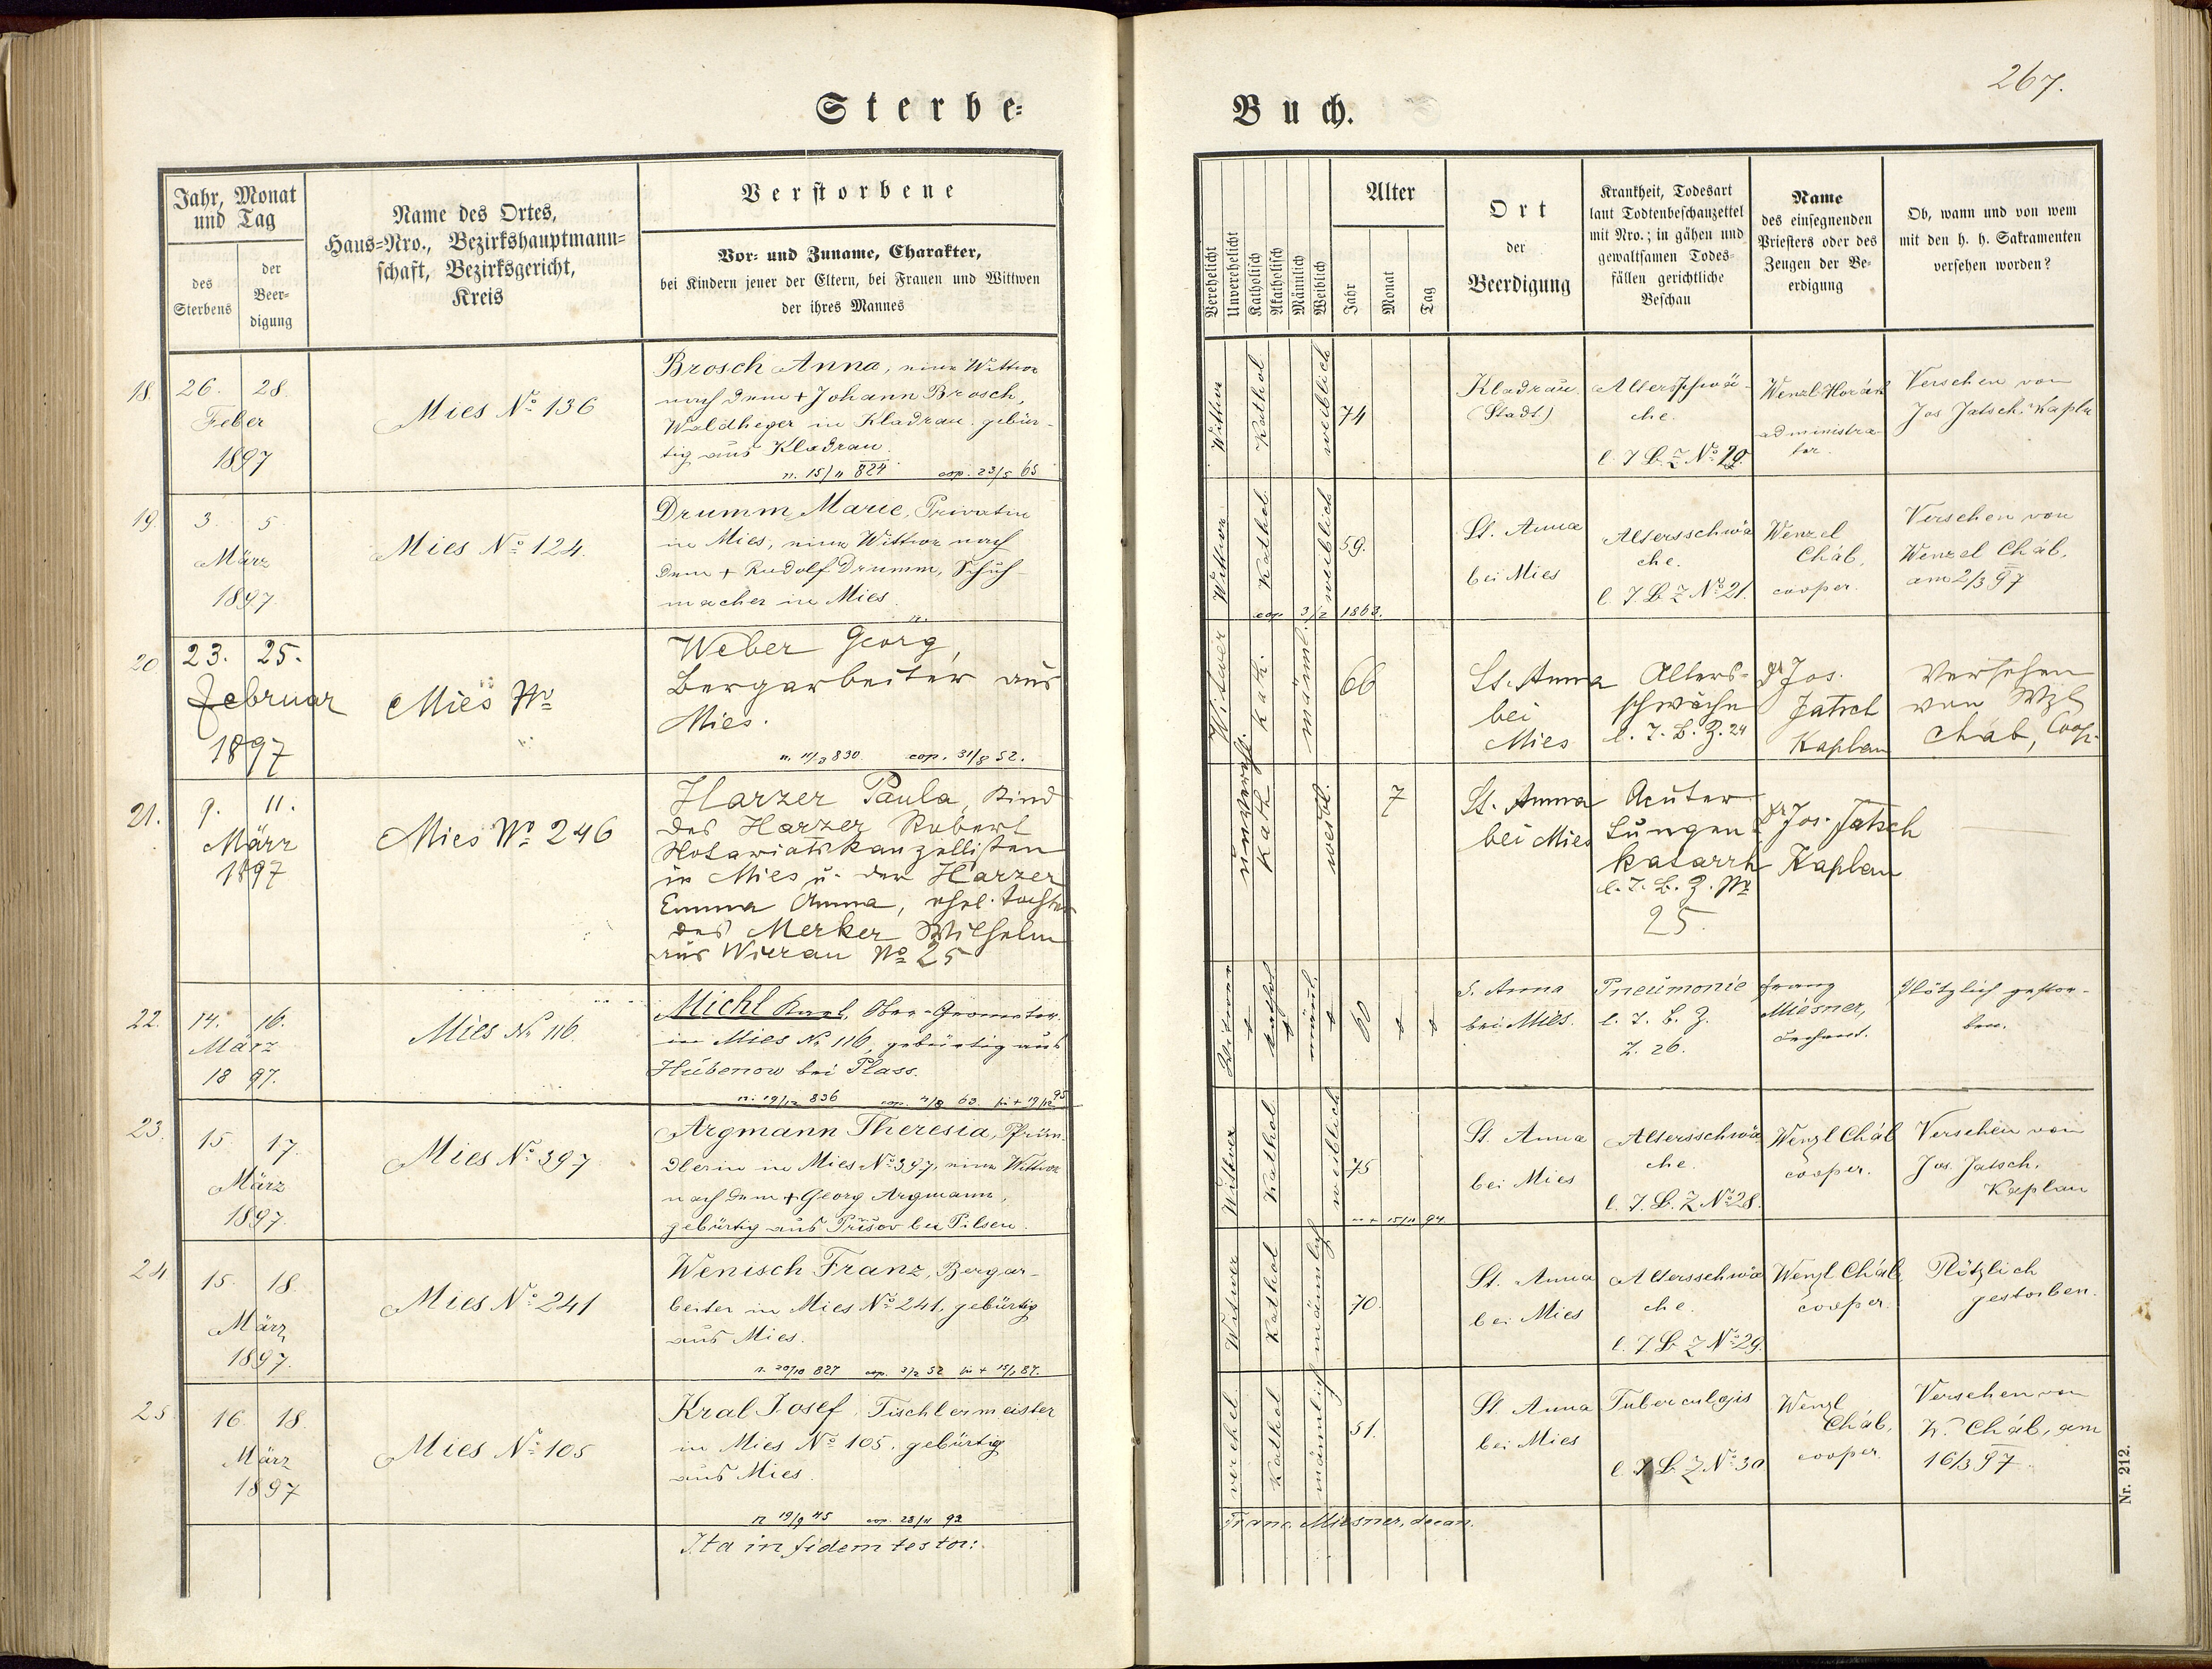 267.
Sterbe-
Buch.
Jahr, Monat
und Tag
des
Sterbens
der
Beer-
digung
Name des Ortes,
Haus-Nro., Bezirkshauptmann-
schaft, Bezirksgericht,
Kreis
Verstorbene
Vor- und Zuname, Charakter,
bei Kindern jener der Eltern, bei Frauen und Wittwen
der ihres Mannes
Verehelicht
Unverehelicht
Katholisch
Akatholisch
Männlich
Weiblich
Alter
Jahr
Monat
Tag
Ort
der
Beerdigung
Krankheit, Todesart
laut Todtenbeschauzettel
mit Nro.; in gähen und
gewaltsamen Todes-
fällen gerichtliche
Beschau
Name
des einsegnenden
Priesters oder des
Zeugen der Be-
erdigung
Ob, wann und von wem
mit den h. h. Sakramenten
versehen worden?
18.
26. 28.
Feber
1897
Mies No 136
Brosch Anna, eine Wittwe
nach dem + Johann Brosch,
Waldheger in Kladrau gebür-
tig aus Kladrau.
n. 15/11 824 cop. 23/5 65
Witwe
Kathol
weiblich
74
Kladrau
(Stadt)
Altersschwä-
che.
l. T. B. Z No 19.
Wenzl Horák
administra-
tor.
Versehen von
Jos. Jatsch, Kapla
19.
3. 5
März
1897
Mies No 124.
Drumm Marie, Privatin
in Mies, eine Wittwe nach
dem + Rudolf Drumm, Schuh-
macher in Mies.
n.
Wittwe
Kathol.
weiblich
59.
cop. 3/2 1863.
St. Anna
bei Mies
Altersschwä
che.
l. T. B. Z No 21.
Wenzel
Cháb,
cooper.
Versehen von
Wenzel Cháb,
am 2/3 97
20
23. 25.
Februar
1897
Mies No
Weber Georg,
Bergarbeiter aus
Mies.
n. 11/3 830 cop. 31/8 52.
Witwer
kath.
männl.
66
St. Anna
bei
Mies
Alters-
schwäche
l. T. B. Z. 24
Jos.
Jatsch
Kaplan
Versehen
von Wzl
Cháb, Coop.
21.
9. 11.
März
1897
Mies No 246
Harzer Paula, Kind
des Harzer Robert
Notariatskanzellisten
in Mies u. der Harzer
Emma Anna, ehel. Tochter
des Merker Wilhelm
aus Wierau No 25
unvereh.
kath
weibl.
7
St. Anna
bei Mies
Acuter
Lungen-
katarrh
l. T. B. Z. No
25.
Jos. Jatsch
Kaplan
22.
14. 16.
März
1897.
Mies No 116.
Michl Karl, Ober-Geometer
in Mies No 116, gebürtig aus
Hubenow bei Plass.
n. 19/12 836
Witwer
kathol
männl.
60
S. Anna
bei Mies.
Pneumonie
l. T. B. Z.
Z. 26.
Franz
Miesner,
Dechant.
Plötzlich gestor-
ben.
23.
15. 17.
März
1897.
Mies No 397
Argmann Theresia, Pfrün-
dlerin in Mies No 397, eine Wittwe
nach dem + Georg Argmann,
gebürtig aus Přišov bei Pilsen.
Witwe
Kathol
weiblich
75
15/11 94
St. Anna
bei Mies
Altersschwä
che.
l. T. B. Z No 28.
Wenzl Cháb
cooper.
Versehen von
Jos. Jatsch.
Kaplan
24
15. 18.
März
1897.
Mies No 241
Wenisch Franz, Bergar-
beiter in Mies No 241, gebürtig
aus Mies.
n. 20/10 827 cop. 3/2 52
Witwer
Kathol
männlich
70.
St. Anna
bei Mies
Altersschwä
che.
l. T. B. Z No 29.
Wenzl Cháb
cooper.
Plötzlich
gestorben.
25
16. 18.
März
1897
Mies No 105
Kral Josef, Tischlermeister
in Mies No 105. gebürtig
aus Mies.
n 19/9 45 cop. 28/11 92
verehel.
Kathol
männlich
51.
St. Anna
bei Mies
Tuberculosis
l. T. B. Z No 30.
Wenzl
Cháb,
cooper.
Versehen von
W. Cháb, am
16/3 97.
Ita in fidem testor:
Franc. Miesner, decan.
Nr. 212.